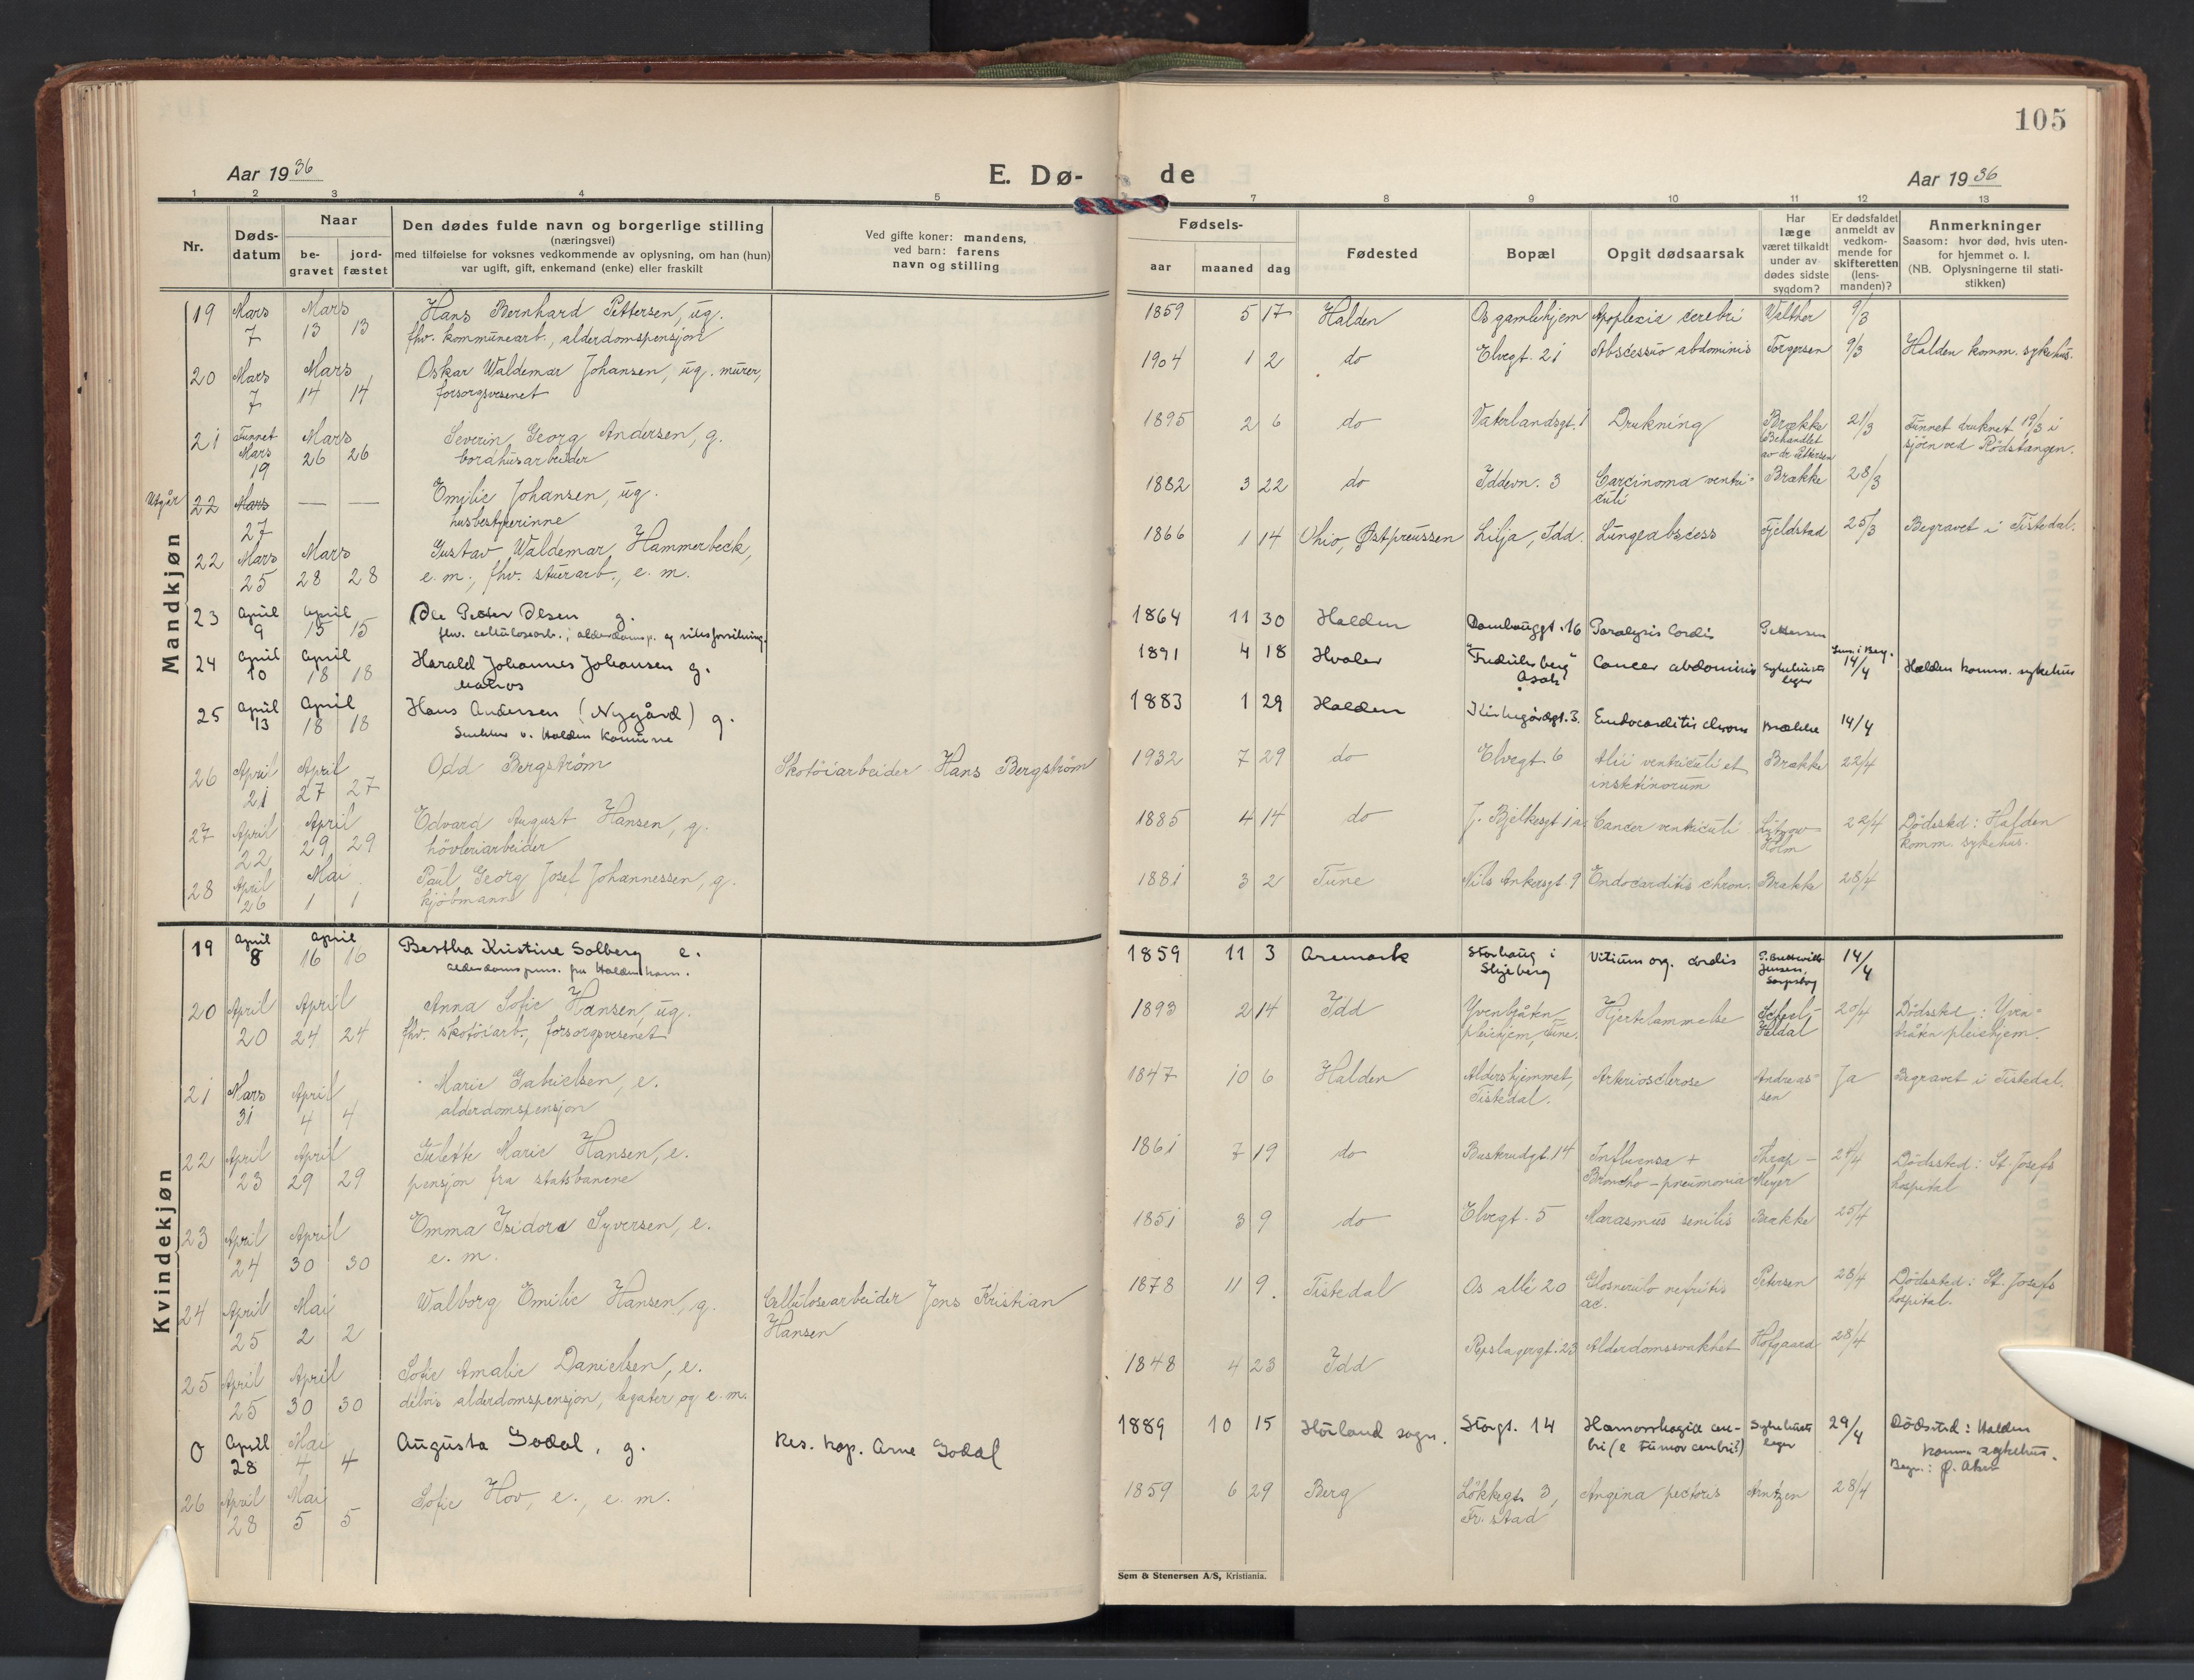 105
Aar 1936
E. Dø-
de
Aar 1936
1 2 3 4 5 7 8 9 10 11 12 13
Nr.
Døds-
datum
Naar
be-
gravet
jord-
fæstet
Den dødes fulde navn og borgerlige stilling
(næringsvei)
med tilføielse for voksnes vedkommende av oplysning, om han (hun)
var ugift, gift, enkemand (enke) eller fraskilt
Ved gifte koner: mandens,
ved barn: farens
navn og stilling
Fødsels-
aar maaned dag
Fødested
Bopæl
Opgit dødsaarsak
Har
læge
været tilkaldt
under av
dødes sidste
sygdom?
Er dødsfaldet
anmeldt av
vedkom-
mende for
skifteretten
(lens-
manden)?
Anmerkninger
Saasom: hvor død, hvis uten-
for hjemmet o. l.
(NB. Oplysningerne til stati-
stikken)
Mandkjøn
19 Mars Mars Hans Bernhard Pettersen, ug. 1859 5 17 Halden Os gamlehjem Apoplexia cerebri Walther 9/3
7 13 13 fhv. kommunearb., alderdomspensjon
20 Mars Mars Oskar Waldemar Johansen, ug. murer, 1904 1 2 do Elvegt. 21 Abscessus abdominis Torgersen 9/3 Halden komm. sykehus.
7 14 14 forsorgsvesenet
21 Funnet Mars Severin Georg Andersen, g. 1895 2 6 do Vaterlandsgt. 1 Drukning Brække 21/3 Funnet druknet 19/3 i
Mars 26 26 bordhusarbeider Behandlet sjøen ved Rødstangen.
19 av dr. Pettersen
Utgår 22 Mars — — Emilie Johansen, ug. 1882 3 22 do Iddevn. 3 Carcinoma ventri- Brække 28/3
27 husbestyrerinne culi
22 Mars Mars Gustav Waldemar Hammerbeck, 1866 1 14 Ohio, Østpreussen Lilja, Idd. Lungeabscess Fjeldstad 25/3 Begravet i Tistedal.
25 28 28 e. m., fhv. stuerarb., e. m.
23 April April Ole Petter Olsen g. 1864 11 30 Halden 16 Paralysis Cordis Pettersen
9 15 15 fhv. cellulosearb.; alderdomsp.
24 April April Harald Johannes Johansen g. 1891 4 18 Hvaler "Fredriksberg" Cancer abdominis Sykehusets 14/4 Halden komm. sykehus
10 18 18 Matros Asak
25 April April Hans Andersen (Nygård) g. 1883 1 29 Halden Kirkegårdgt. 3. Endocarditis chron Brække 14/4
13 18 18 v. Halden Komune
26 April April Odd Bergstrøm Skotøiarbeider Hans Bergstrøm 1932 7 29 do Elvegt 6 ventriculi et Brække 22/4
21 27 27 insktinorum
27 April April Edvard August Hansen, g. 1885 4 14 do J. Bjelkesgt. 1a Cancer ventriculi Lützow- 22/4 Dødssted: Halden
22 29 29 høvleriarbeider Holm komm. sykehus.
28 April Mai Paul Georg Josef Johannessen, g. 1881 3 2 Tune Nils Ankersgt. 9 Endocarditis chron. Brække 28/4
26 1 1 kjøbmann
Kvindekjøn
19 April April Bertha Kristine Solberg e. 1859 11 3 Aremark Storhaug i Vitium org. cordis 14/4
8 16 16 alderdomspens. fra Halden kom. Skjeberg Jensen, Sarpsborg
20 April April Anna Sofie Hansen, ug. 1893 2 14 Idd Yvenbråten Hjertelammelse Scheel- 20/4 Dødssted: Yven-
20 24 24 fhv. skotøiarb., forsorgsvesenet pleiehjem, Tune. Haldal bråten pleiehjem.
21 Mars April Marie Gabrielsen, e. 1847 10 6 Halden Aldershjemmet, Arteriosclerose Andreas- Ja Begravet i Tistedal.
31 4 4 alderdomspensjon Tistedal. sen
22 April April Gulette Marie Hansen, e. 1861 7 19 do Buskrudgt. 14 Influensa + Thrap- 24/4 Dødssted: St. Josefs
23 29 29 pensjon fra statsbanene Broncho-pneumonia Meyer hospital
23 April April Emma Isidora Syversen, e. 1851 3 9 do Elvegt. 5 Marasmus senilis Brække 25/4
24 30 30 e. m.
24 April Mai Walborg Emilie Hansen, g. Cellulosearbeider Jens Kristian 1878 11 9 Tistedal Os allé 20 Glomerulo nefritis Petersen 28/4 Dødssted: St. Josefs
25 2 2 Hansen ac. hospital.
25 April April Sofie Amalie Danielsen, e. 1848 4 23 Idd Repslagergt. 23 Alderdomssvakhet Hofgaard 28/4
25 30 30 delvis alderdomspensjon, legater og e. m.
0 April Mai Augusta Godal, g. Res. kap. Arne Godal 1889 10 15 Hörland sogn. Storgt. 14 Hæmorrhagia cere- Sykehusets 29/4 Dödssted: Halden
28 4 4 bri (e tumor cerebri?) komm. sykehus.
Begr.: Ø. Aker
26 April Mai Sofie Hov, e., e. m. 1859 6 29 Berg Løkkegt. 3, Angina pectoris Arntzen 28/4
28 5 5 Fr.stad
Sem & Stenersen A/S, Kristiania.